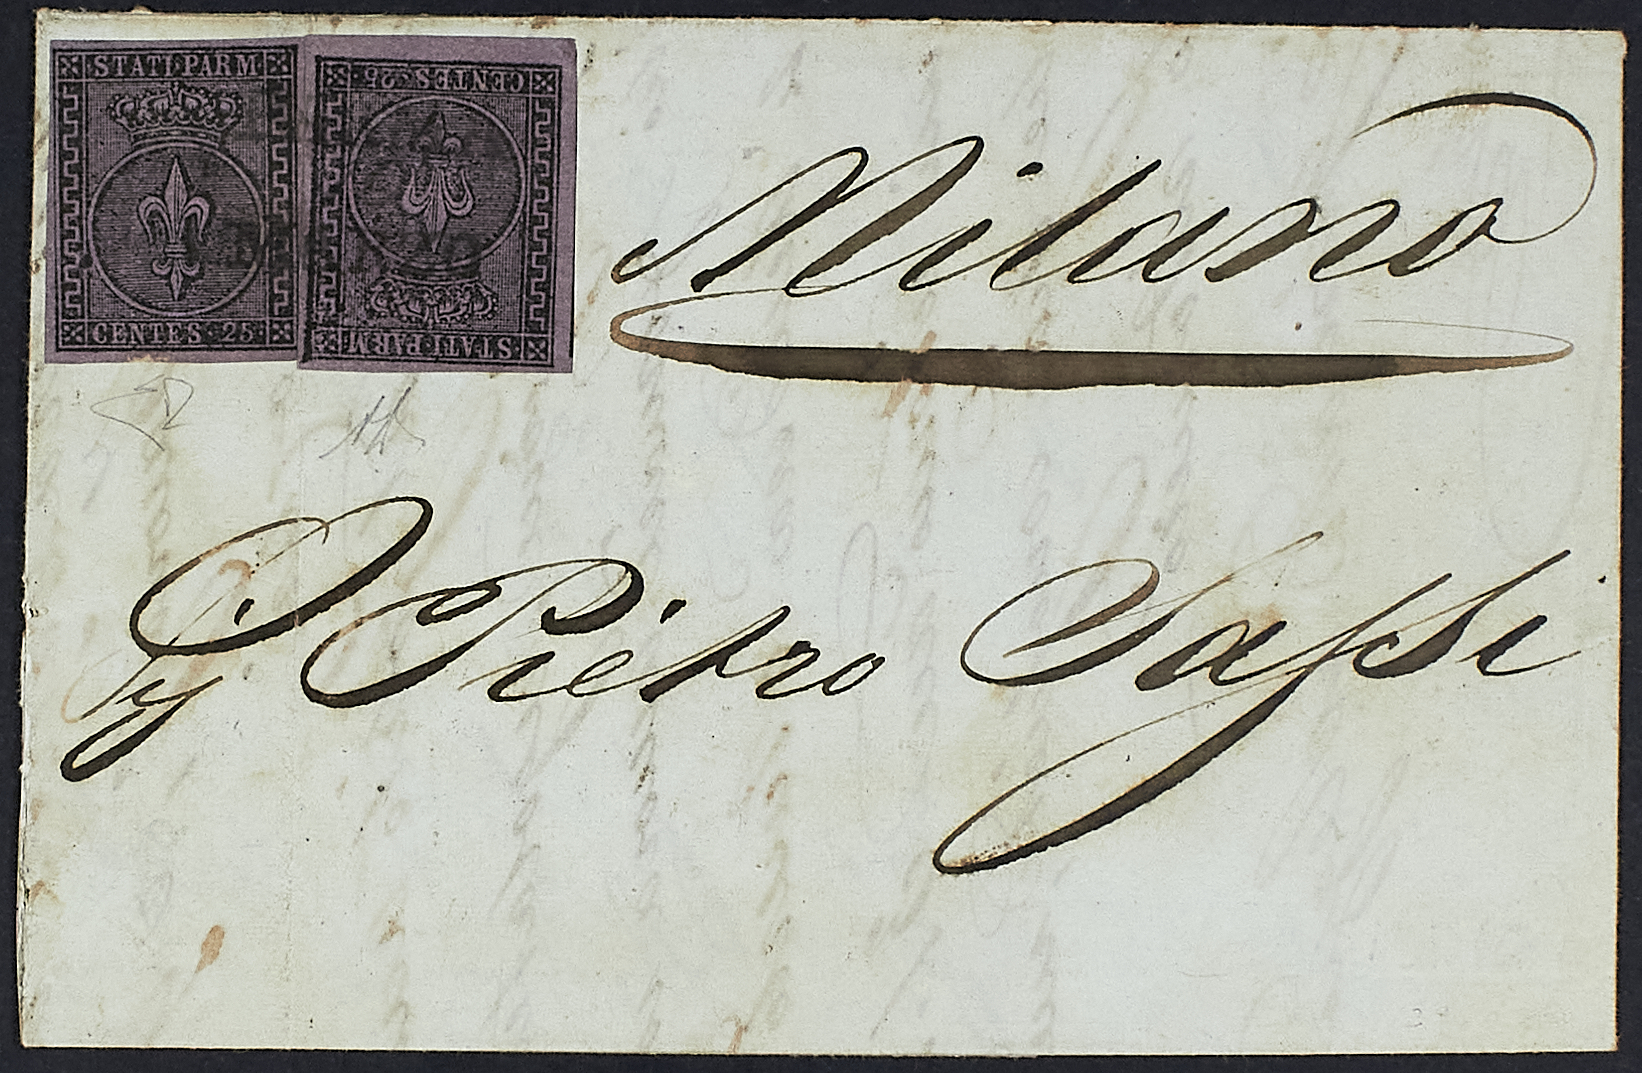 STATI PARM
CENTES 25
CENTES 25
STATI PARM
Milano
Pietro Sassi